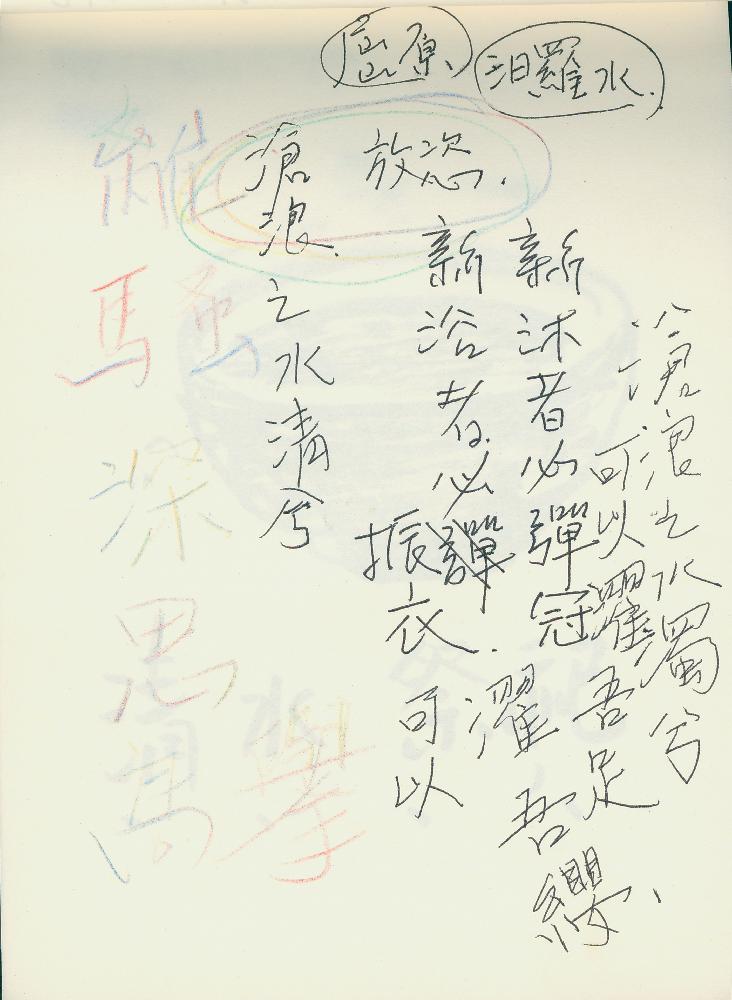 屈原
汨羅水.
滄浪之水濁兮
可以濯吾足
新沐者必彈冠
新浴者必振衣.
放恣.
滄浪之水清兮
可以濯吾纓.
離騷
深思高舉